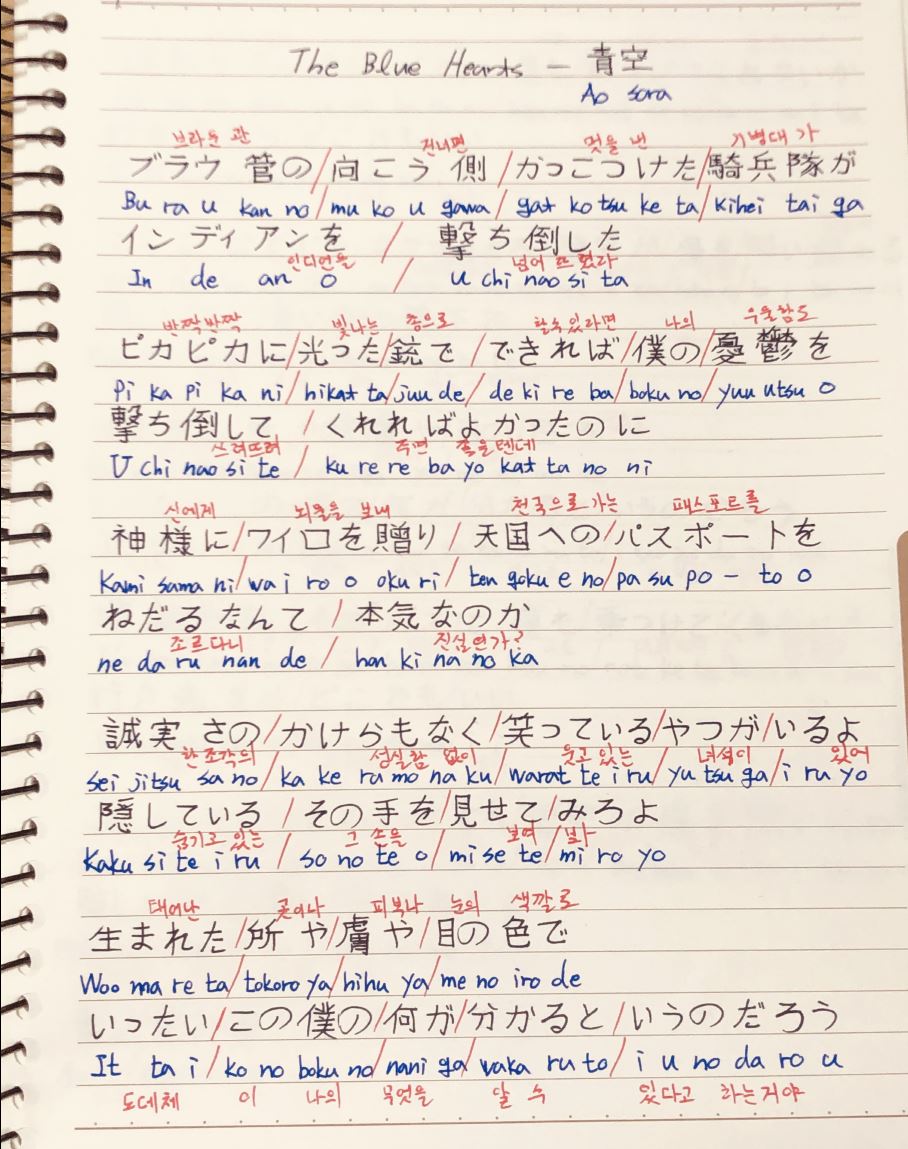 The Blue Hearts – 青空
Ao sora
브라운 관 건너편 멋을 낸 기병대 가
ブラウ管の/向こう側/かっこつけた/騎兵隊が
Bu ra u kan no/mu ko u gawa/gat ko tsu ke ta/kihei tai ga
インディアンを / 撃ち倒した
인디언을 넘어 뜨렸다
In de an o / u chi nao si ta
반짝반짝 빛나는 총으로 할수있라면 나의 우울함도
ピカピカに/光った/銃で/できれば/僕の/憂鬱を
Pi ka pi ka ni/hikat ta/juu de/de ki re ba/boku no/yuu utsu o
撃ち倒して / くれればよかったのに
쓰러뜨려 주면 좋을텐데
U chi nao si te / ku re re ba yo kat ta no ni
신에게 뇌물을 보내 천국으로 가는 패스포트를
神様に/ワイロを贈り/天国への/パスポートを
Kami sama ni/wa i ro o oku ri/ten goku e no/pa su po – to o
ねだるなんて / 本気なのか
조르다니 진심인가?
ne da ru nan de / hon ki na no ka
誠実さの/かけらもなく/笑っている/やつが/いるよ
한조각의 성실함 없이 웃고있는 녀석이 있어
sei jitsu sa no/ka ke ra mo na ku/warat te i ru/yu tsu ga/i ru yo
隠している / その手を/見せて/みろよ
숨기고 있는 그 손을 보여 봐
Kaku si te i ru / so no te o/mi se te/mi ro yo
태어난 곳이나 피부나 눈의 색깔로
生まれた/所や/膚や/目の色で
Woo ma re ta/tokoro ya/hihu ya/me no iro de
いったい/この僕の/何が/分かると/いうのだろう
It ta i/ko no boku no/nani ga/waka ru to/i u no da ro u
도데체 이 나의 무엇을 알 수 있다고 하는거야